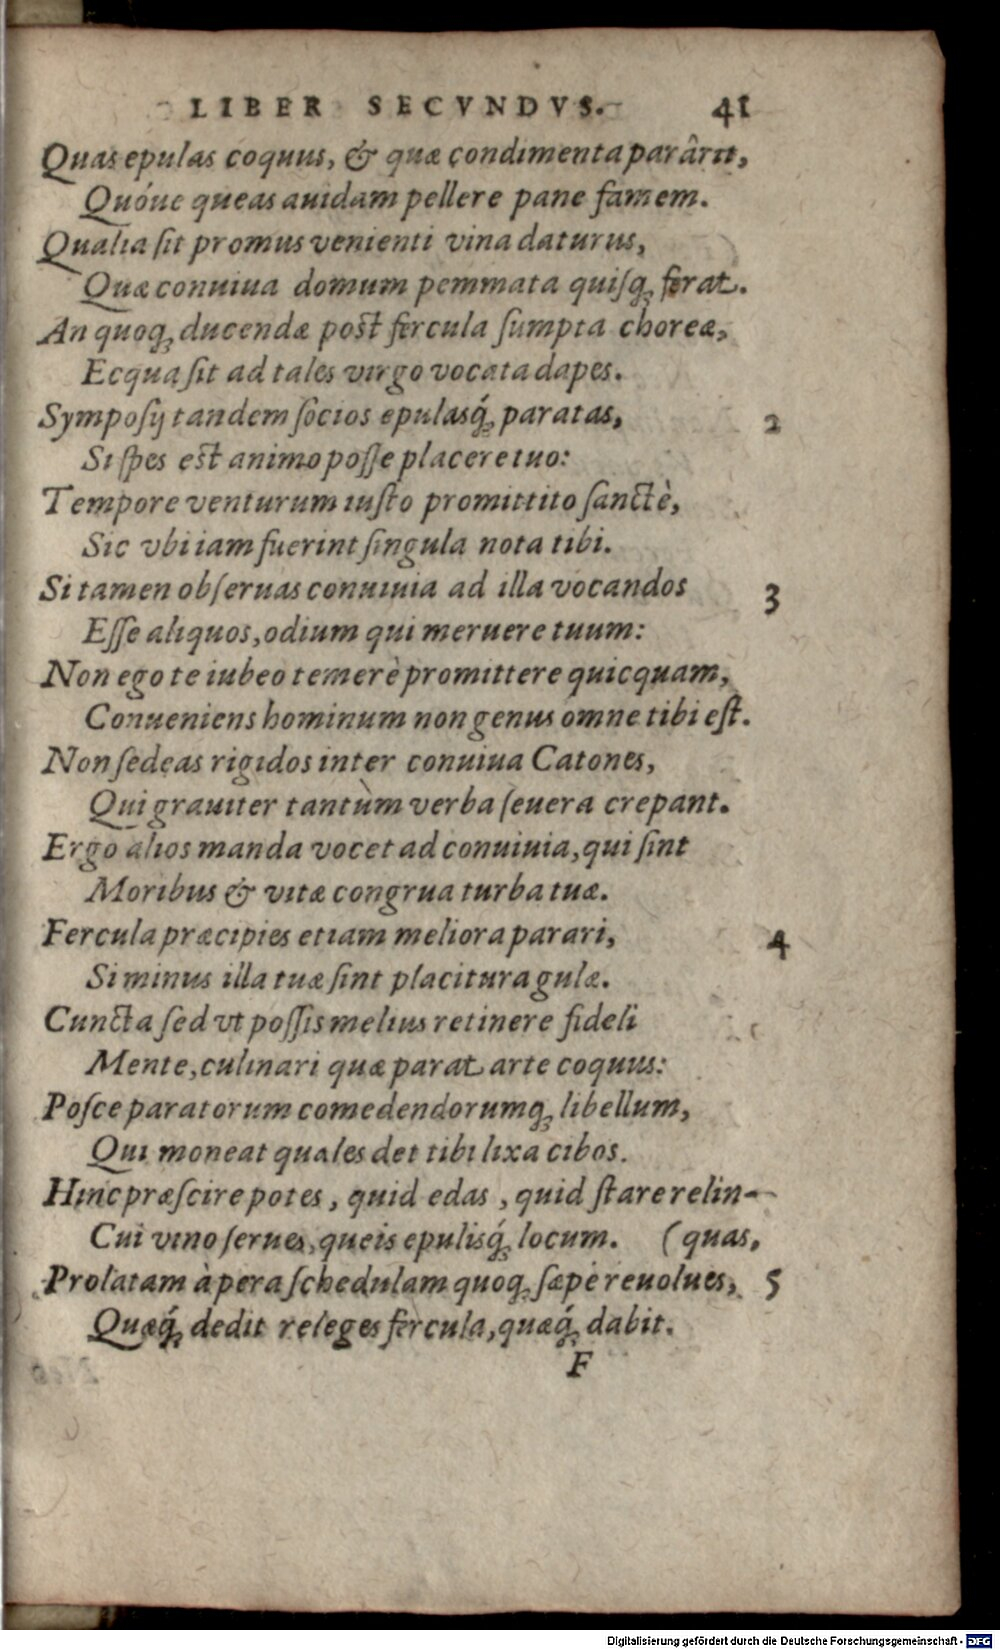 LIBER SECVNDVS. 41
Quas epulas coquus, & quæ condimenta parârit,
Quóue queas auidam pellere pane famem.
Qualia sit promus venienti vina daturus,
Quæ conuiua domum pemmata quisq; ferat.
An quoq; ducendæ post fercula sumpta choreæ,
Ecqua sit ad tales virgo vocata dapes.
Symposij tandem socios epulasq́; paratas, 2
Si spes est animo posse placere tuo:
Tempore venturum iusto promittito sanctè,
Sic vbi iam fuerint singula nota tibi.
Si tamen obseruas conuiuia ad illa vocandos 3
Esse aliquos, odium qui meruere tuum:
Non ego te iubeo temerè promittere quicquam,
Conueniens hominum non genus omne tibi est.
Non sedeas rigidos inter conuiua Catones,
Qui grauiter tantùm verba seuera crepant.
Ergo alios manda vocet ad conuiuia, qui sint
Moribus & vitæ congrua turba tuæ.
Fercula præcipies etiam meliora parari, 4
Si minus illa tuæ sint placitura gulæ.
Cuncta sed vt possis melius retinere fideli
Mente, culinari quæ parat arte coquus:
Posce paratorum comedendorumq; libellum,
Qui moneat quales det tibi lixa cibos.
Hinc præscire potes, quid edas, quid stare relin-
Cui vino serues, queis epulisq́; locum. (quas,
Prolatam à pera schedulam quoq; sæpè reuolues, 5
Quæq́; dedit releges fercula, quæq́; dabit.
F
Digitalisierung gefördert durch die Deutsche Forschungsgemeinschaft - DFG